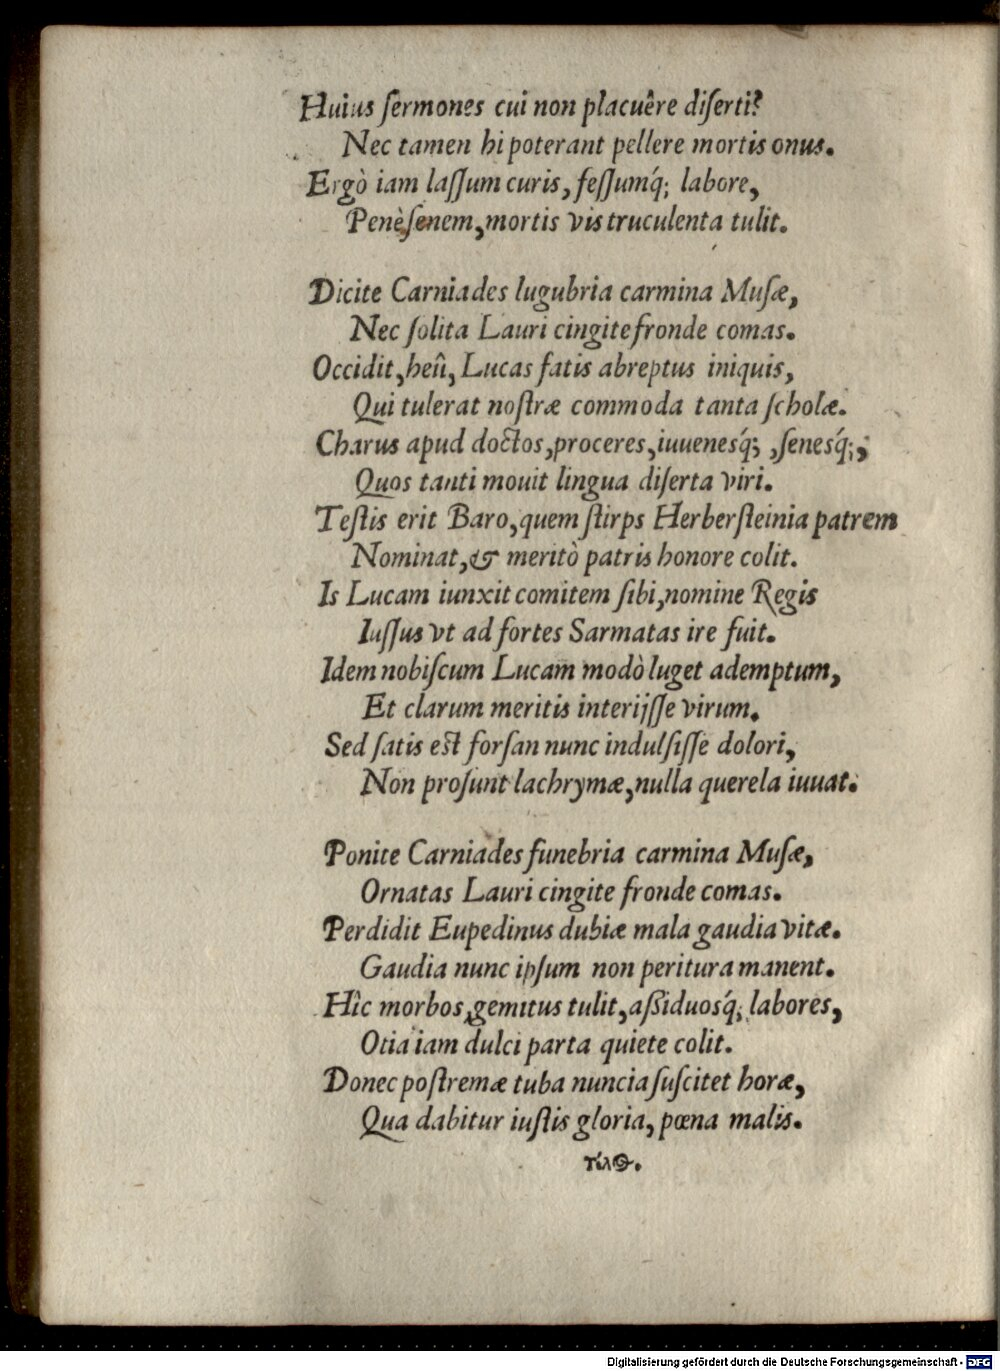 Huius ſermones cui non placuêre diſerti?
Nec tamen hi poterant pellere mortis onus.
Ergò iam laſſum curis, feſſumq́; labore,
Penè ſenem, mortis vis truculenta tulit.
Dicite Carniades lugubria carmina Muſæ,
Nec ſolita Lauri cingite fronde comas.
Occidit, heu̓, Lucas fatis abreptus iniquis,
Qui tulerat noſtræ commoda tanta ſcholæ.
Charus apud doctos, proceres, iuuenesq́;, ſenesq́;,
Quos tanti mouit lingua diſerta viri.
Teſtis erit Baro, quem ſtirps Herberſteinia patrem
Nominat, & meritò patris honore colit.
Is Lucam iunxit comitem ſibi, nomine Regis
Iuſſus vt ad fortes Sarmatas ire fuit.
Idem nobiſcum Lucam modò luget ademptum,
Et clarum meritis interijſſe virum.
Sed ſatis eſt forſan nunc indulſiſſe dolori,
Non proſunt lachrymæ, nulla querela iuuat.
Ponite Carniades funebria carmina Muſæ,
Ornatas Lauri cingite fronde comas.
Perdidit Eupedinus dubiæ mala gaudia vitæ.
Gaudia nunc ipſum non peritura manent.
Hîc morbos, gemitus tulit, aßiduosq́; labores,
Otia iam dulci parta quiete colit.
Donec poſtremæ tuba nuncia ſuſcitet horæ,
Qua dabitur iuſtis gloria, pœna malis.
Digitalisierung gefördert durch die Deutsche Forschungsgemeinschaft - DFG